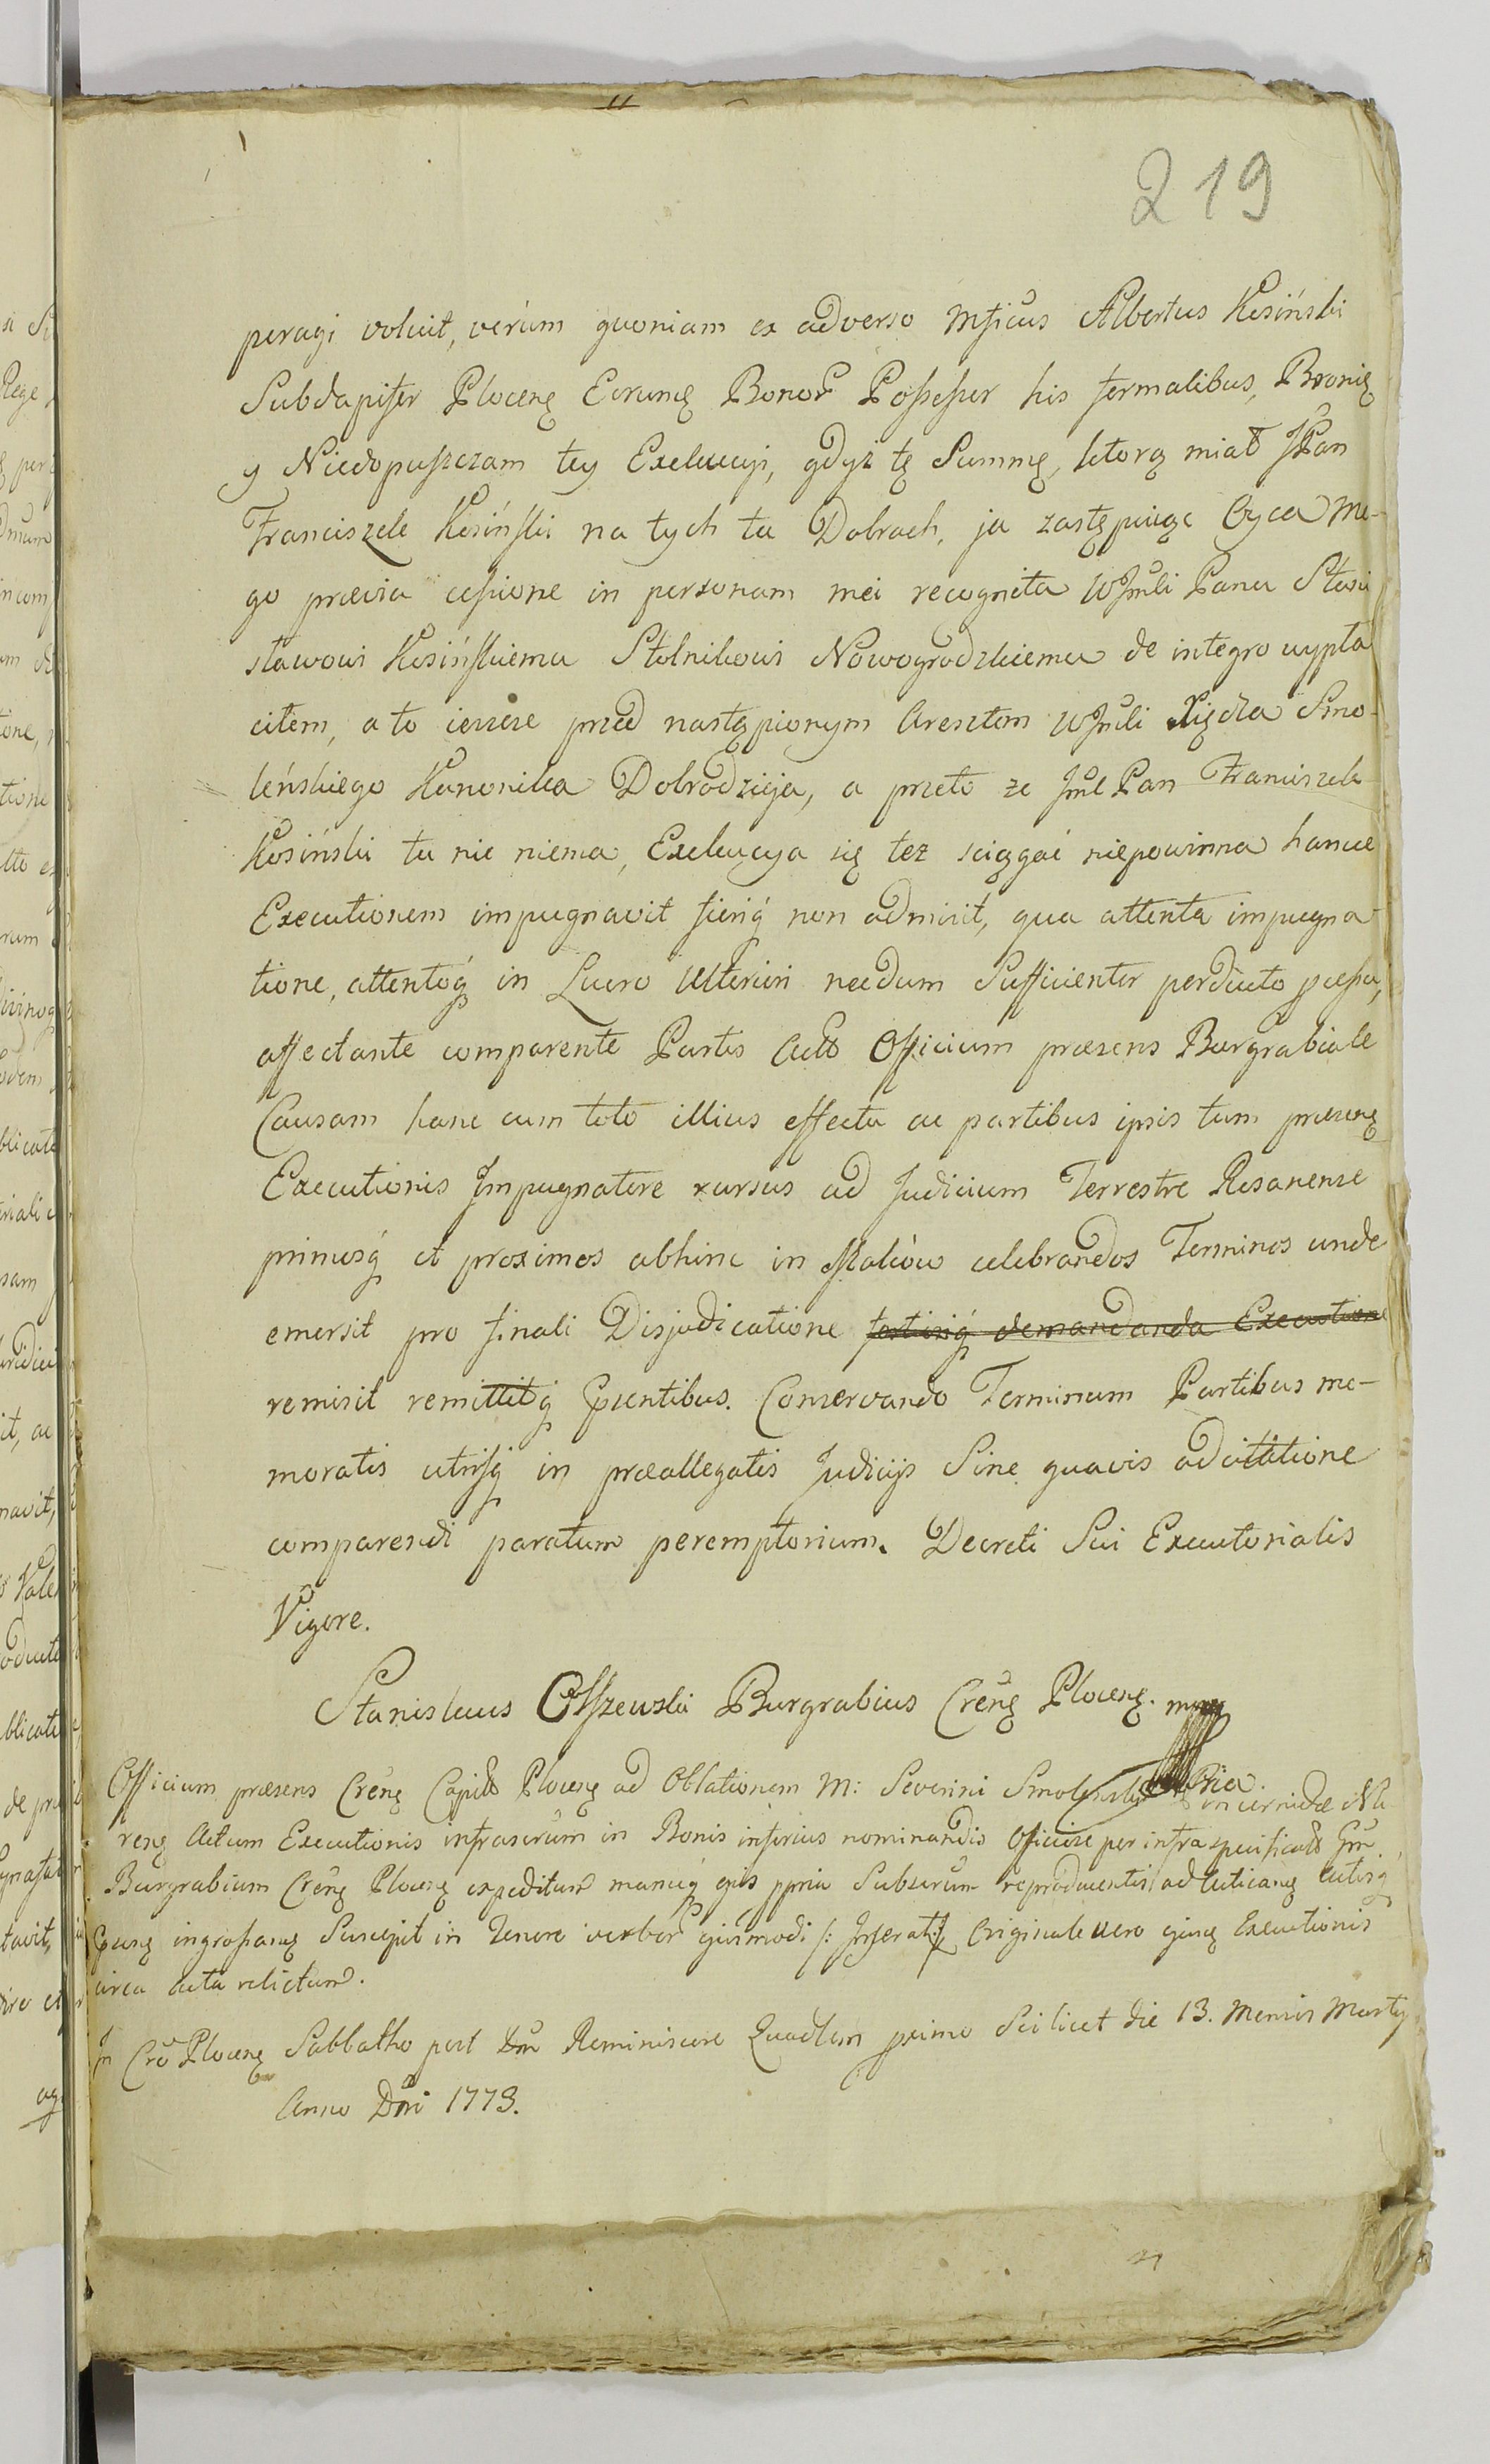 219
peragi voluit, verùm quoniam ex adverso Mficus Albertus Kosiński
Subdapifer Plocenẹ Eorumq Bonor Possessor his formalibus, Bronię
y Niedopuszczam tey Exekucyi, gdyż tę Summę, ktorą miał JPan
Franciszek Kosiński na tych tu Dobrach, ja zastępuiąc Oyca me-
go prævia cessione in personam mei recognita WJmći Panu Stani
sławowi Kosińskiemu Stolnikowi Nowogrodzkiemu de integro wypła
ciłem, a to ieszcze przed nastąpionym Aresztem WJmći Xiędza Smo-
leńskiego Kanonika Dobrodzieja, a przeto ze Jmć Pan Franciszek
Kosiński tu nic niema, Exekucya się tez sciągać niepowinna hancce
Executionem impugnavit fieriq́ non admisit, qua attenta impugna
tione, attentoq́ in Lucro Ulteriori necdum Sufficienter perducto processu,
affectante comparente Partis Actô Officium præsens Burgrabiale
Causam hanc cum toto illius effectu ac partibus ipsis tum præsenẹ
Executionis Impugnatore rursus ad Judicium Terrestre Rosanense
primosq́ et proximos abhinc in Maków celebrandos Terminos unde
emersit pro finali Disjudicatione fortiriq́ demandanda Executione
remisit remittitq́ Pntibus. Conservando Terminum Partibus me-
moratis utrisq́ in præallegatis Judicijs Sine quavis adcitatione
comparendi paratum peremptorium. Decreti Sui Executorialis
Vigore.
Stanislaus Olszewski Burgrabius Crenẹ Plocenẹ. mppria.
Officium præsens Crenẹ Capitô Plocenẹ ad Oblationem M: Severini Smoleński
renẹ Actum Executionis infrascrûm in Bonis inferius nominandis Officiose per infra specificatû Gnr̃
Burgrabium Crenẹ Plocenẹ expeditum manuq́ ejus ppria Subscrûm reproducentis ad acticanẹ Actisq́
Psenẹ ingrossanẹ Suscepit in Tenore verbor ejusmodi /: Inserat:/ Originale vero ejusẹ Executionis
circa Acta relictum.
In Crô Plocenẹ Sabbatho post Dm̃ Reminiscere Quadlem primo Scilicet die 13. Mensis Marty
Anno Dñi 1773.